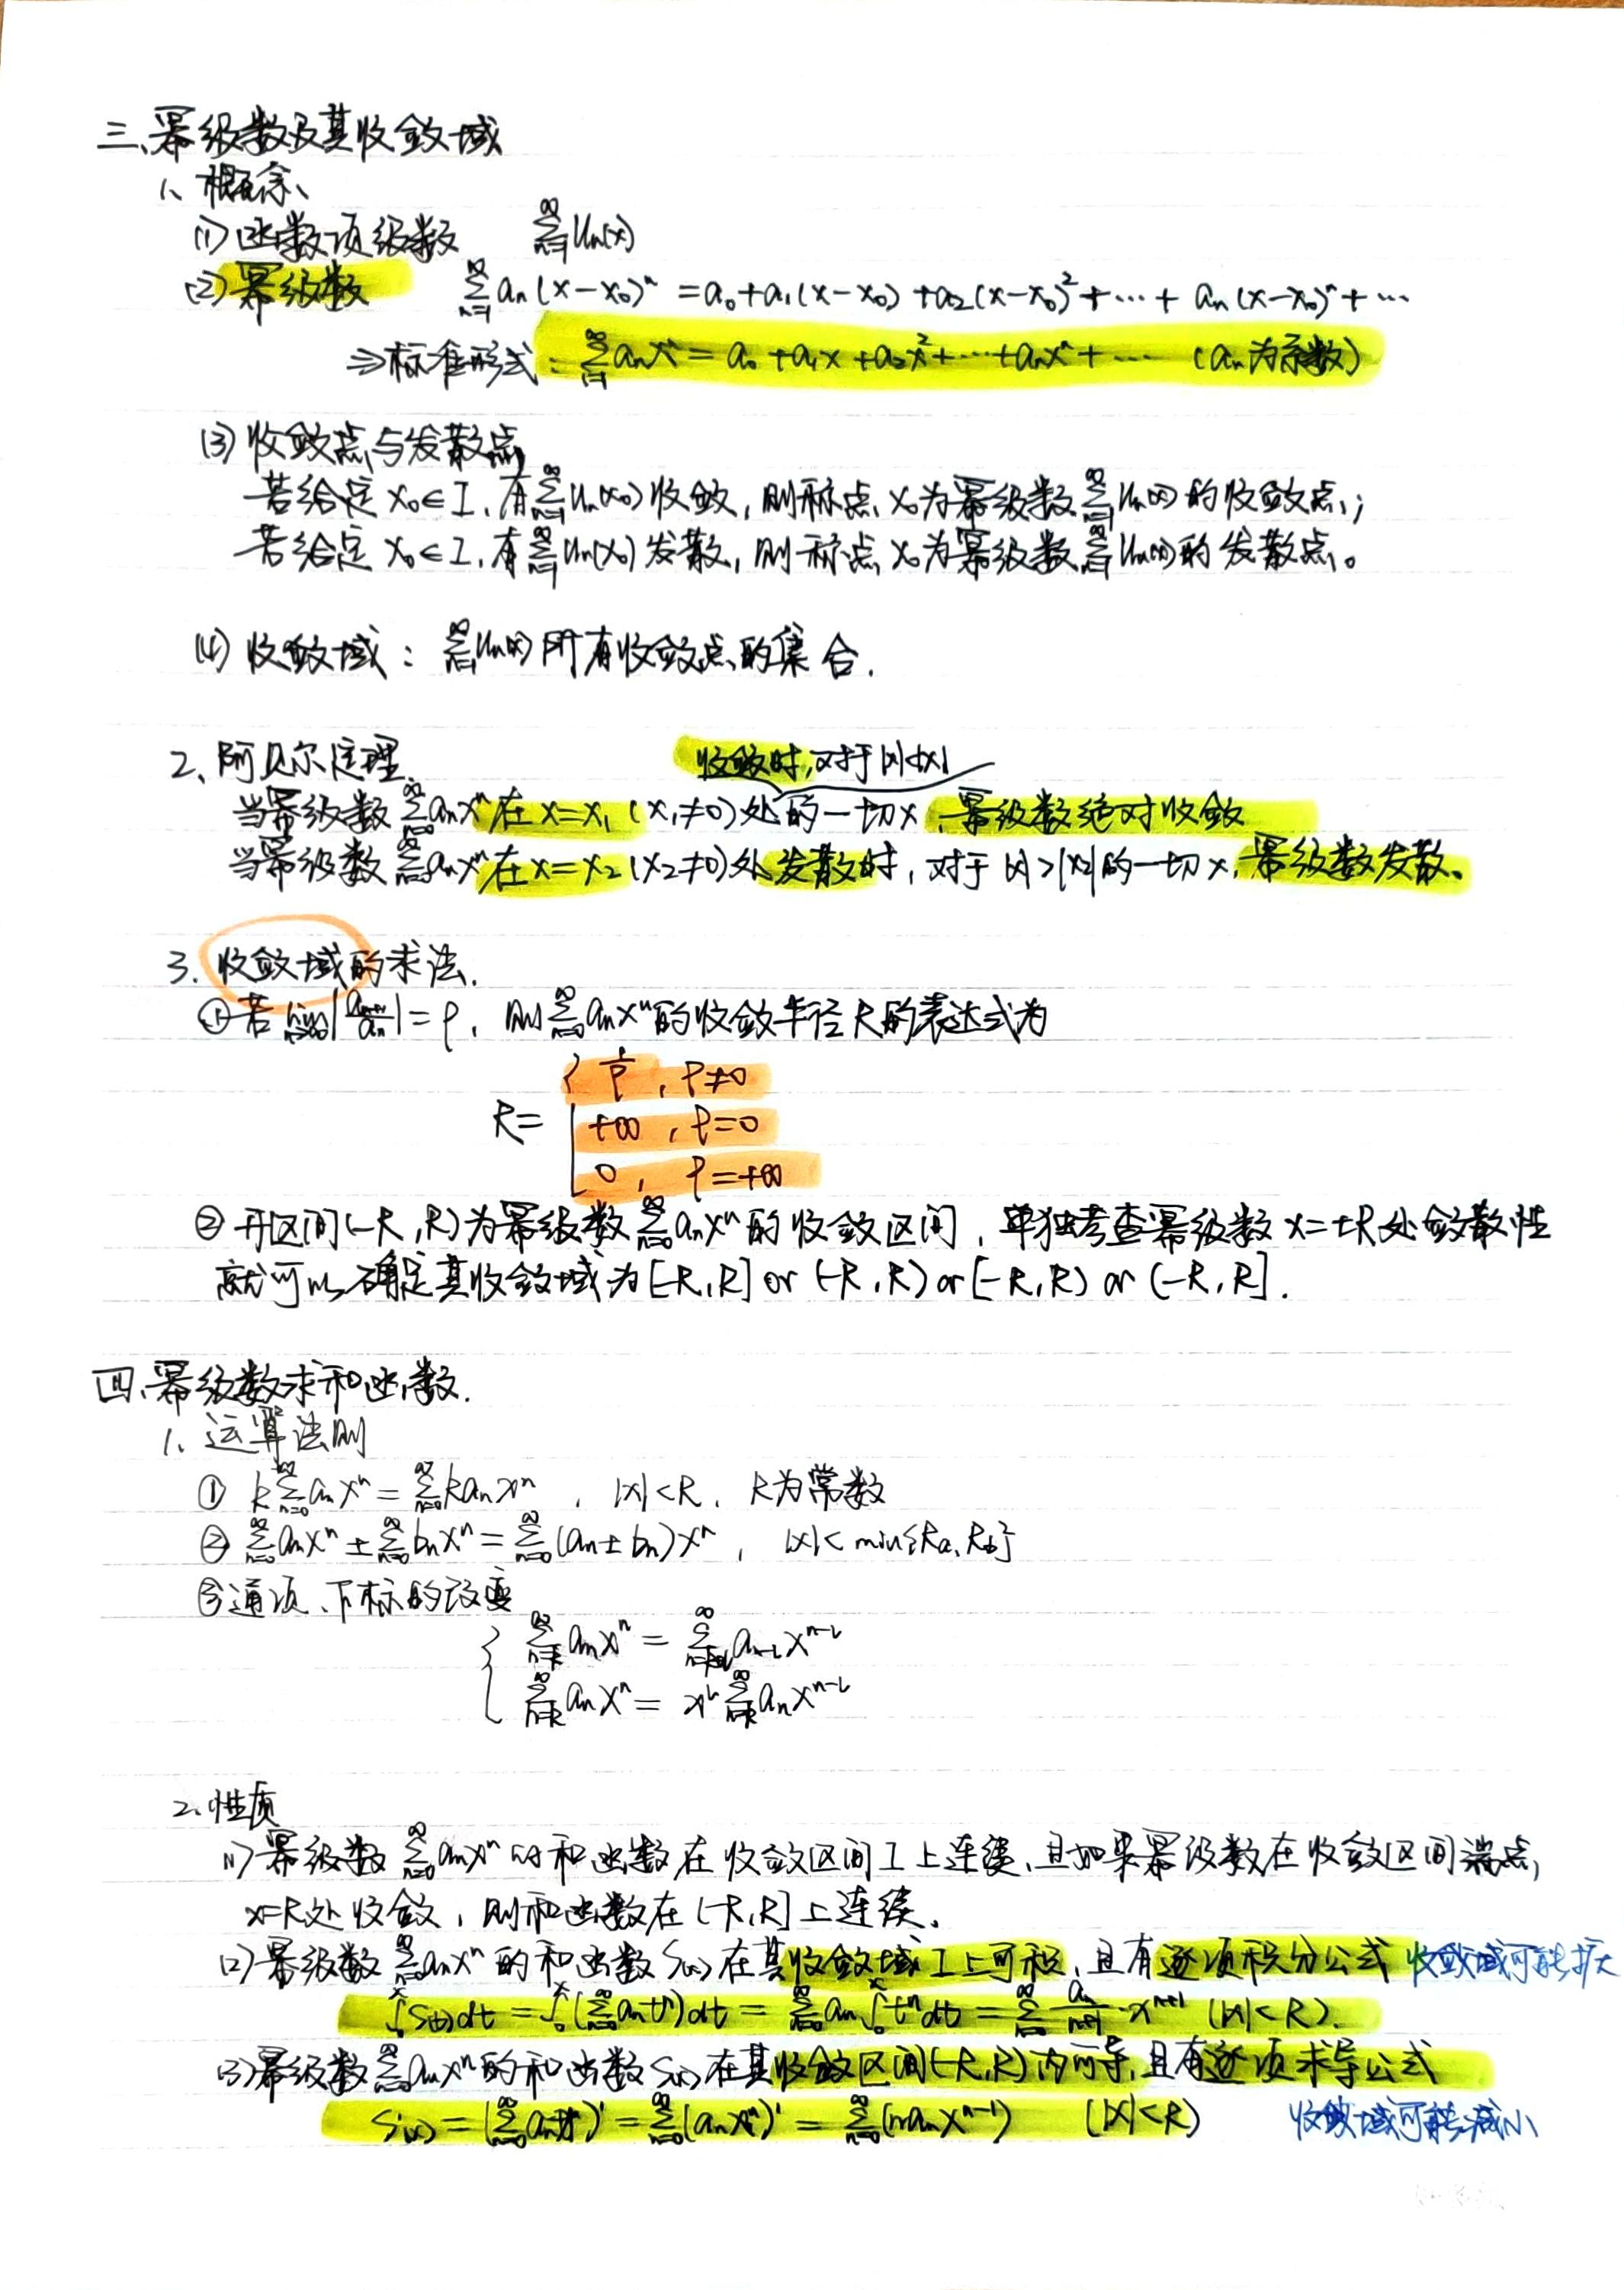 三、幂级数及其收敛域
1、概念、
(1) 函数项级数 ∑_{n=1}^{∞} Un(x)
(2) 幂级数 ∑_{n=1}^{∞} an(x-x0)^n = a0+a1(x-x0)+a2(x-x0)^2+⋯+an(x-x0)^n+⋯
⇒标准形式: ∑_{n=1}^{∞} anx^n = a0+a1x+a2x^2+⋯+anx^n+⋯ (an为系数)
(3) 收敛点与发散点
若给定 x0∈I, 有∑_{n=1}^{∞}Un(x0)收敛, 则称点 x0为幂级数∑_{n=1}^{∞}Un(x)的收敛点;
若给定 x0∈I, 有∑_{n=1}^{∞}Un(x0)发散, 则称点 x0为幂级数∑_{n=1}^{∞}Un(x)的发散点。
(4) 收敛域: ∑_{n=1}^{∞}Un(x)所有收敛点的集合.
2、阿贝尔定理.
收敛时,对于|x|<|x1|
当幂级数∑_{n=0}^{∞}anx^n在x=x1 (x1≠0)处的一切x, 幂级数绝对收敛
当幂级数∑_{n=0}^{∞}anx^n在x=x2 (x2≠0)处发散时, 对于|x|>|x2|的一切x, 幂级数发散。
3. 收敛域的求法.
①若 lim_{n→∞}|a_{n+1}/an|=ρ, 则∑_{n=0}^{∞}anx^n的收敛半径R的表达式为
1/ρ, ρ≠0
R= { +∞, ρ=0
0, ρ=+∞
② 开区间(-R,R)为幂级数∑_{n=0}^{∞}anx^n的收敛区间, 单独考查幂级数x=±R处敛散性
就可以确定其收敛域为[-R,R] or (-R,R) or [-R,R) or (-R,R].
四、幂级数求和函数.
1、运算法则
① k∑_{n=0}^{∞}anx^n=∑_{n=0}^{∞}kanx^n, |x|<R, k为常数
② ∑_{n=0}^{∞}anx^n±∑_{n=0}^{∞}bnx^n=∑_{n=0}^{∞}(an±bn)x^n, |x|<min{Ra,Rb}
③通项、下标的改变
{ ∑_{n=k}^{∞}anx^n = ∑_{n=k+l}^{∞}a_{n-l}x^{n-l}
∑_{n=k}^{∞}anx^n = x^l∑_{n=k}^{∞}anx^{n-l}
2、性质
(1)幂级数∑_{n=0}^{∞}anx^n的和函数在收敛区间I上连续,且如果幂级数在收敛区间端点,
x=R处收敛, 则和函数在(-R,R]上连续.
(2)幂级数∑_{n=0}^{∞}anx^n的和函数S(x)在其收敛域I上可积, 且有逐项积分公式 收敛域可能扩大
∫_0^x S(t)dt=∫_0^x(∑_{n=0}^{∞}ant^n)dt=∑_{n=0}^{∞}an∫_0^x t^n dt=∑_{n=0}^{∞} an/(n+1)·x^{n+1} (|x|<R).
(3)幂级数∑_{n=0}^{∞}anx^n的和函数S(x)在其收敛区间(-R,R)内可导,且有逐项求导公式
S'(x)=(∑_{n=0}^{∞}anx^n)'=∑_{n=0}^{∞}(anx^n)'=∑_{n=0}^{∞}(nanx^{n-1}) (|x|<R) 收敛域可能减小